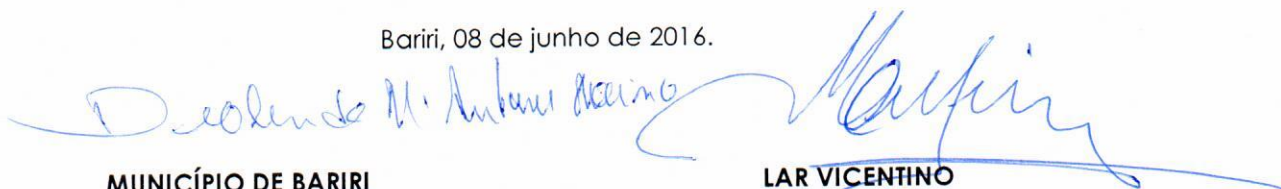 Bariri, 08 de junho de 2016.
Deolinda M. Antunes Marino
MUNICÍPIO DE BARIRI LAR VICENTINO